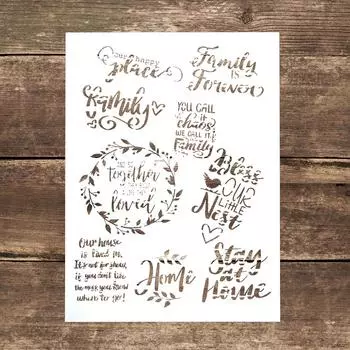 our happy
place
Family
IS
FOREVER
Family
YOU CALL
IT
chaos
WE CALL IT
Family
AND SO
Together
Loved
Bless
OUR
LITTLE
Nest
Our house
is lived in.
It's not for show,
if you don't like
the mess you know
where to go!
Home
Stay
at
Home